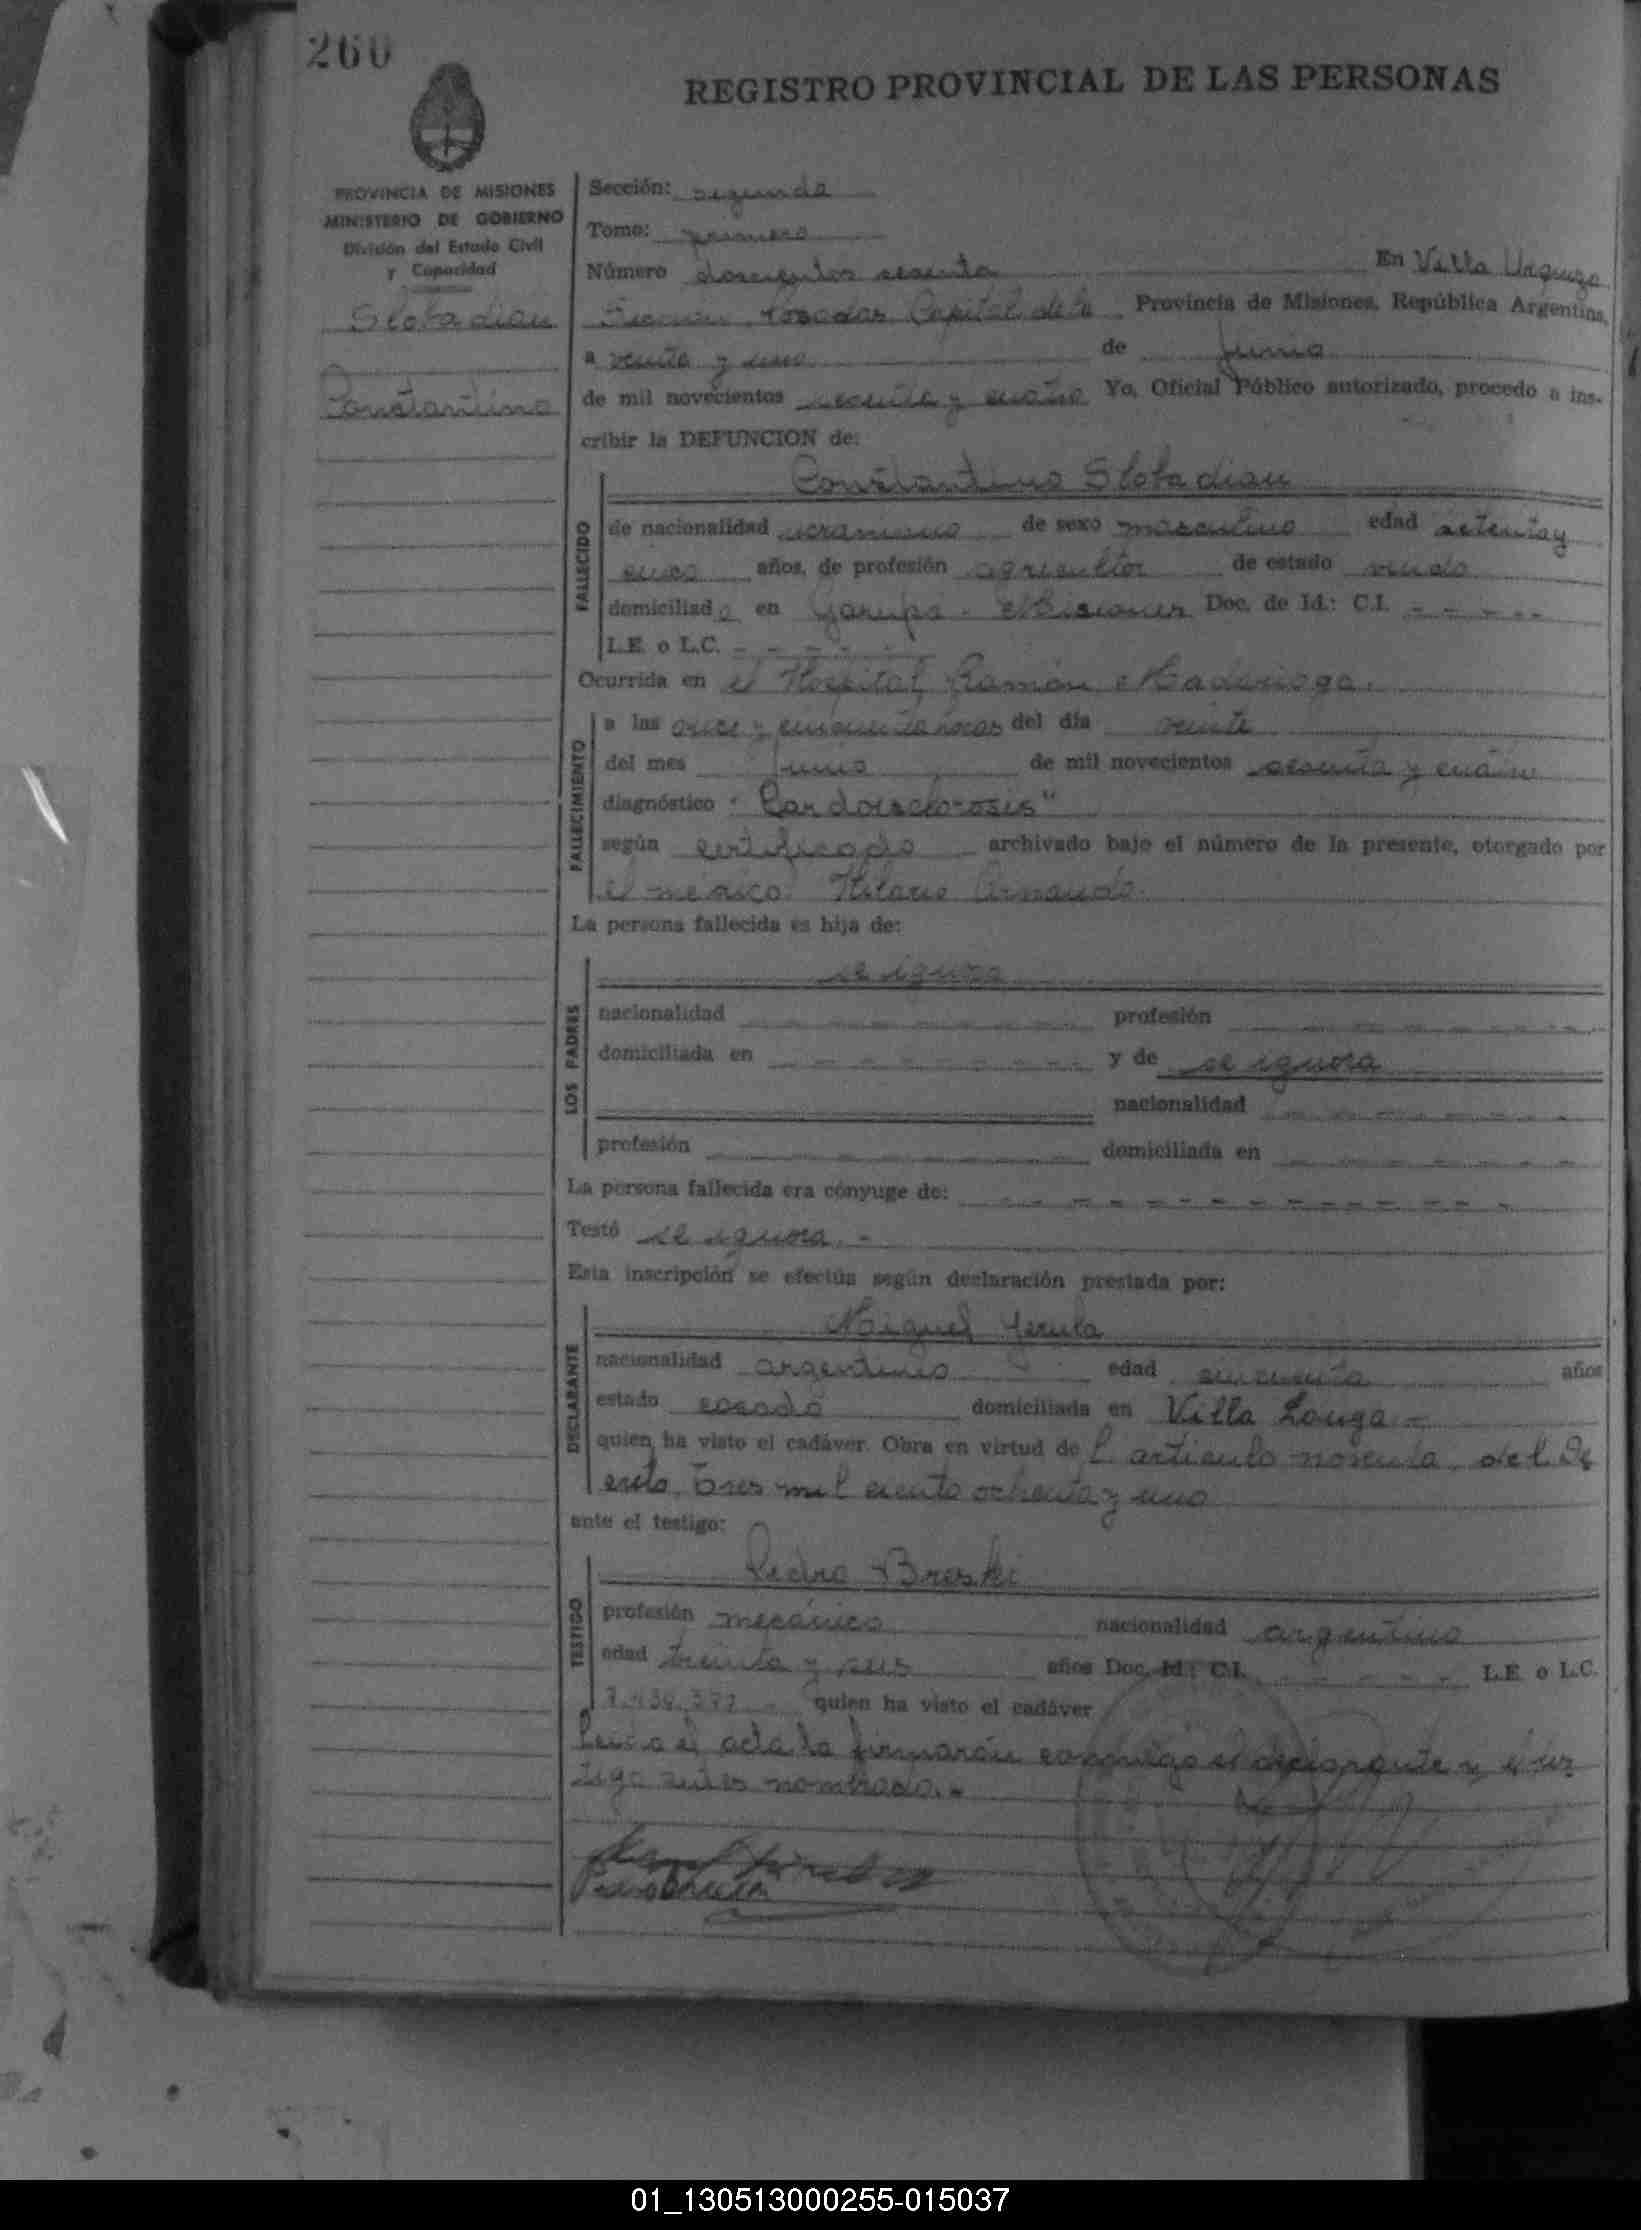 260
REGISTRO PROVINCIAL DE LAS PERSONAS
PROVINCIA DE MISIONES
MINISTERIO DE GOBIERNO
División del Estado Civil
y Capacidad
Slobadian
Constantino
Sección: segunda
Tomo: primero
Número doscientos sesenta En Villa Urquiza
Posadas Capital de la Provincia de Misiones, República Argentina,
a veinte y uno de junio
de mil novecientos sesenta y cuatro Yo, Oficial Público autorizado, procedo a ins-
cribir la DEFUNCION de:
FALLECIDO
Constantino Slobadian
de nacionalidad ucraniano de sexo masculino edad setenta y
cinco años, de profesión agricultor de estado viudo
domiciliado en Garupá - Misiones Doc. de Id.: C.I. - - - - -
L.E. o L.C. - - - - -
Ocurrida en el Hospital Ramón Madariaga.
FALLECIMIENTO
a las once y cincuenta horas del día veinte
del mes junio de mil novecientos sesenta y cuatro
diagnóstico "Cardoesclerosis"
según certificado archivado bajo el número de la presente, otorgado por
el médico Hilario Arnaudo.
La persona fallecida es hija de:
LOS PADRES
se ignora
nacionalidad - - - - - profesión - - - - -
domiciliada en - - - - - y de se ignora
nacionalidad - - - - -
profesión - - - - - domiciliada en - - - - -
La persona fallecida era cónyuge de: - - - - -
Testó se ignora. -
Esta inscripción se efectúa según declaración prestada por:
DECLARANTE
Miguel
nacionalidad argentino edad cincuenta años
estado casado domiciliada en Villa Longa -
quien ha visto el cadáver. Obra en virtud del artículo noventa del De
creto Tres mil ciento ochenta y uno
ante el testigo:
TESTIGO
Pedro Breski
profesión mecánico nacionalidad argentino
edad treinta y seis años Doc. Id.: C.I. - - - - - L.E. o L.C.
quien ha visto el cadáver
Leída el acta la firmarón conmigo el declarante y el tes
tigo antes nombrado. -
01_130513000255-015037